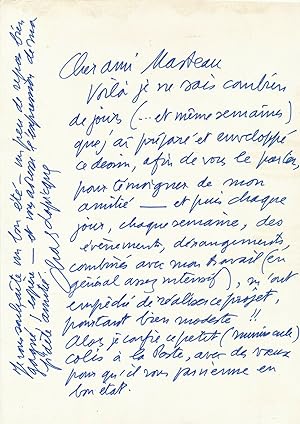 Cher ami Masteau
Voilà je ne sais combien
de jours (... et même semaines)
que j'ai préparé et enveloppé
ce dessin, afin de vous le porter,
pour témoigner de mon
amitié — et puis chaque
jour, chaque semaine, des
évènements, dérangements,
combinés avec mon travail (en
général assez intensif), m'ont
empêché de réaliser ce projet,
pourtant bien modeste !!
Alors je confie ce petit (minuscule)
colis à la Poste, avec des vœux
pour qu'il vous parvienne en
bon état.
Je vous souhaite un bon été — un peu de repos bien
gagné j'espère — et vous adresse l'expression de ma
fidèle amitié
Charles Lapicque